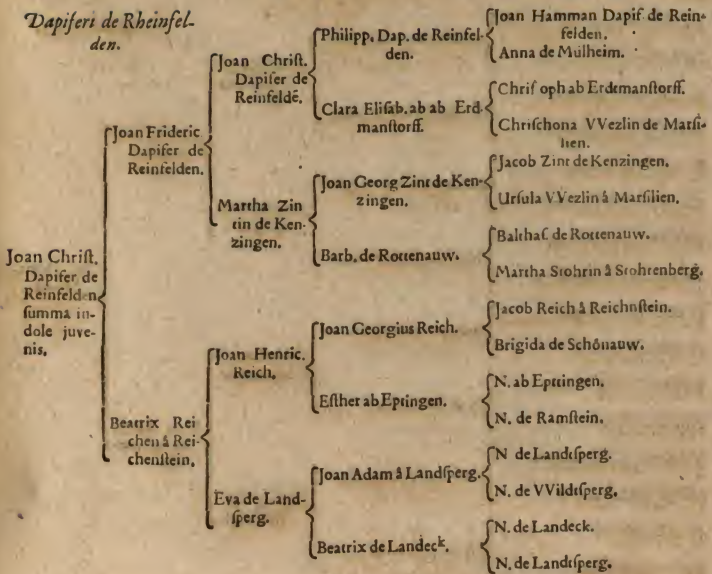 Dapiferi de Rheinfel-
den.
Joan Christ.
Dapifer de
Reinfelden
summa in-
dole juve-
nis,
Joan Frideric
Dapifer de
Reinfelden.
Beatrix Rei
chen â Rei-
chenstein,
Joan Christ.
Dapifer de
Reinfeldē.
Martha Zin
tin de Ken-
zingen.
Joan Henric.
Reich,
Eva de Land-
sperg.
Philipp. Dap. de Reinfel-
den.
Clara Elisab. ab ab Erd-
manstorff.
Joan Georg Zint de Ken-
zingen.
Barb. de Rottenauw.
Joan Georgius Reich.
Esther ab Eptingen.
Joan Adam â Landsperg.
Beatrix de Landeck.
Joan Hamman Dapif de Rein-
felden.
Anna de Mulheim.
Christoph ab Erdtmanstorff.
Chrischona VVezlin de Marsi-
lien.
Jacob Zint de Kenzingen.
Ursula VVezlin â Marsilien.
Balthas de Rottenauw.
Martha Stohrin â Stohrenberg.
Jacob Reich â Reichnstein.
Brigida de Schönauw.
N. ab Epttingen.
N. de Ramstein.
N de Landtsperg.
N. de VVildtsperg.
N. de Landeck.
N. de Landtsperg.